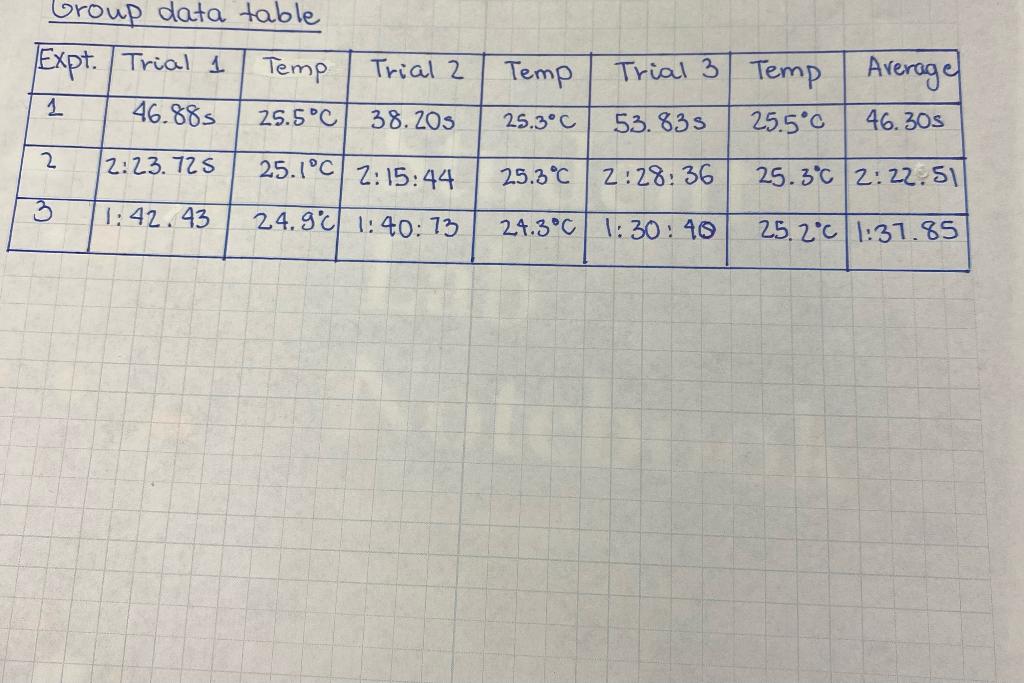 Group data table
Expt. Trial 1 Temp Trial 2 Temp Trial 3 Temp Average
1 46.88s 25.5°C 38.20s 25.3°C 53.83s 25.5°C 46.30s
2 2:23.72s 25.1°C 2:15:44 25.3°C 2:28:36 25.3°C 2:22.51
3 1:42.43 24.9°C 1:40:73 24.3°C 1:30:40 25.2°C 1:37.85